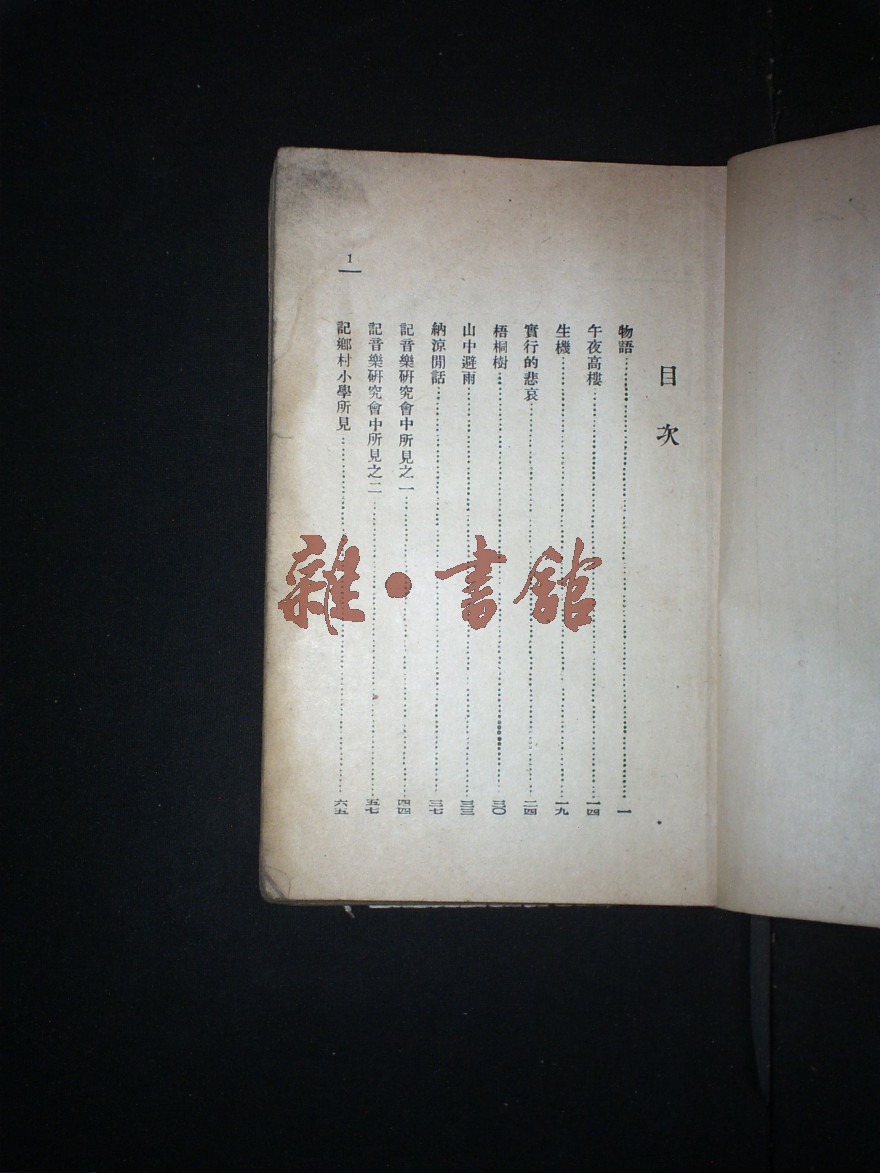 目次
物語 一
午夜高樓 一四
生機 一九
實行的悲哀 二四
梧桐樹 三〇
山中避雨 三三
納涼閒話 三七
記音樂研究會中所見之一 四四
記音樂研究會中所見之二 五七
記鄉村小學所見 六五
1
雜·書館